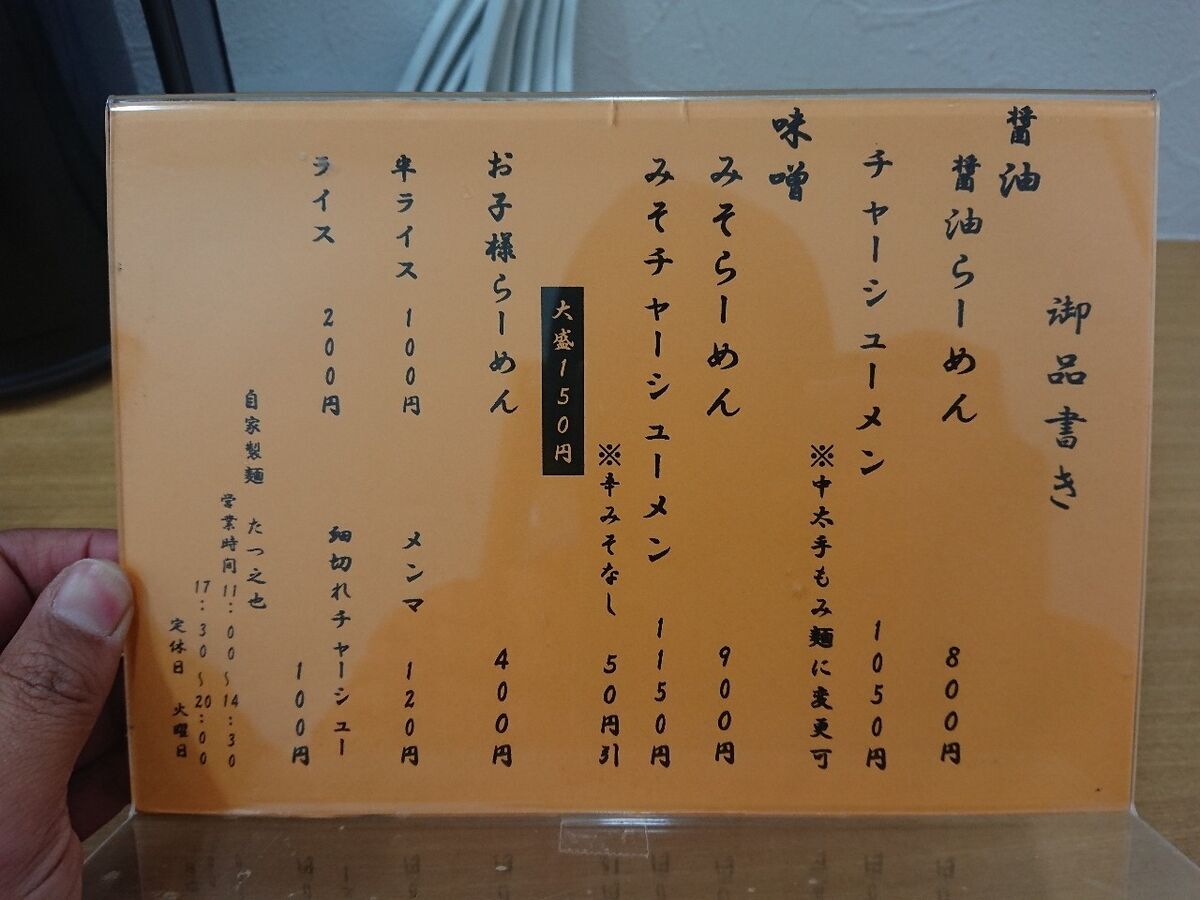 御品書き
醤油
醤油らーめん 800円
チャーシューメン 1050円
※中太手もみ麺に変更可
味噌
みそらーめん 900円
みそチャーシューメン 1150円
※辛みそなし 50円引
大盛150円
お子様らーめん 400円
半ライス 100円
メンマ 120円
ライス 200円
細切れチャーシュー
100円
自家製麺 たつ之也
営業時間 11:00~14:30
17:30~20:00
定休日 火曜日